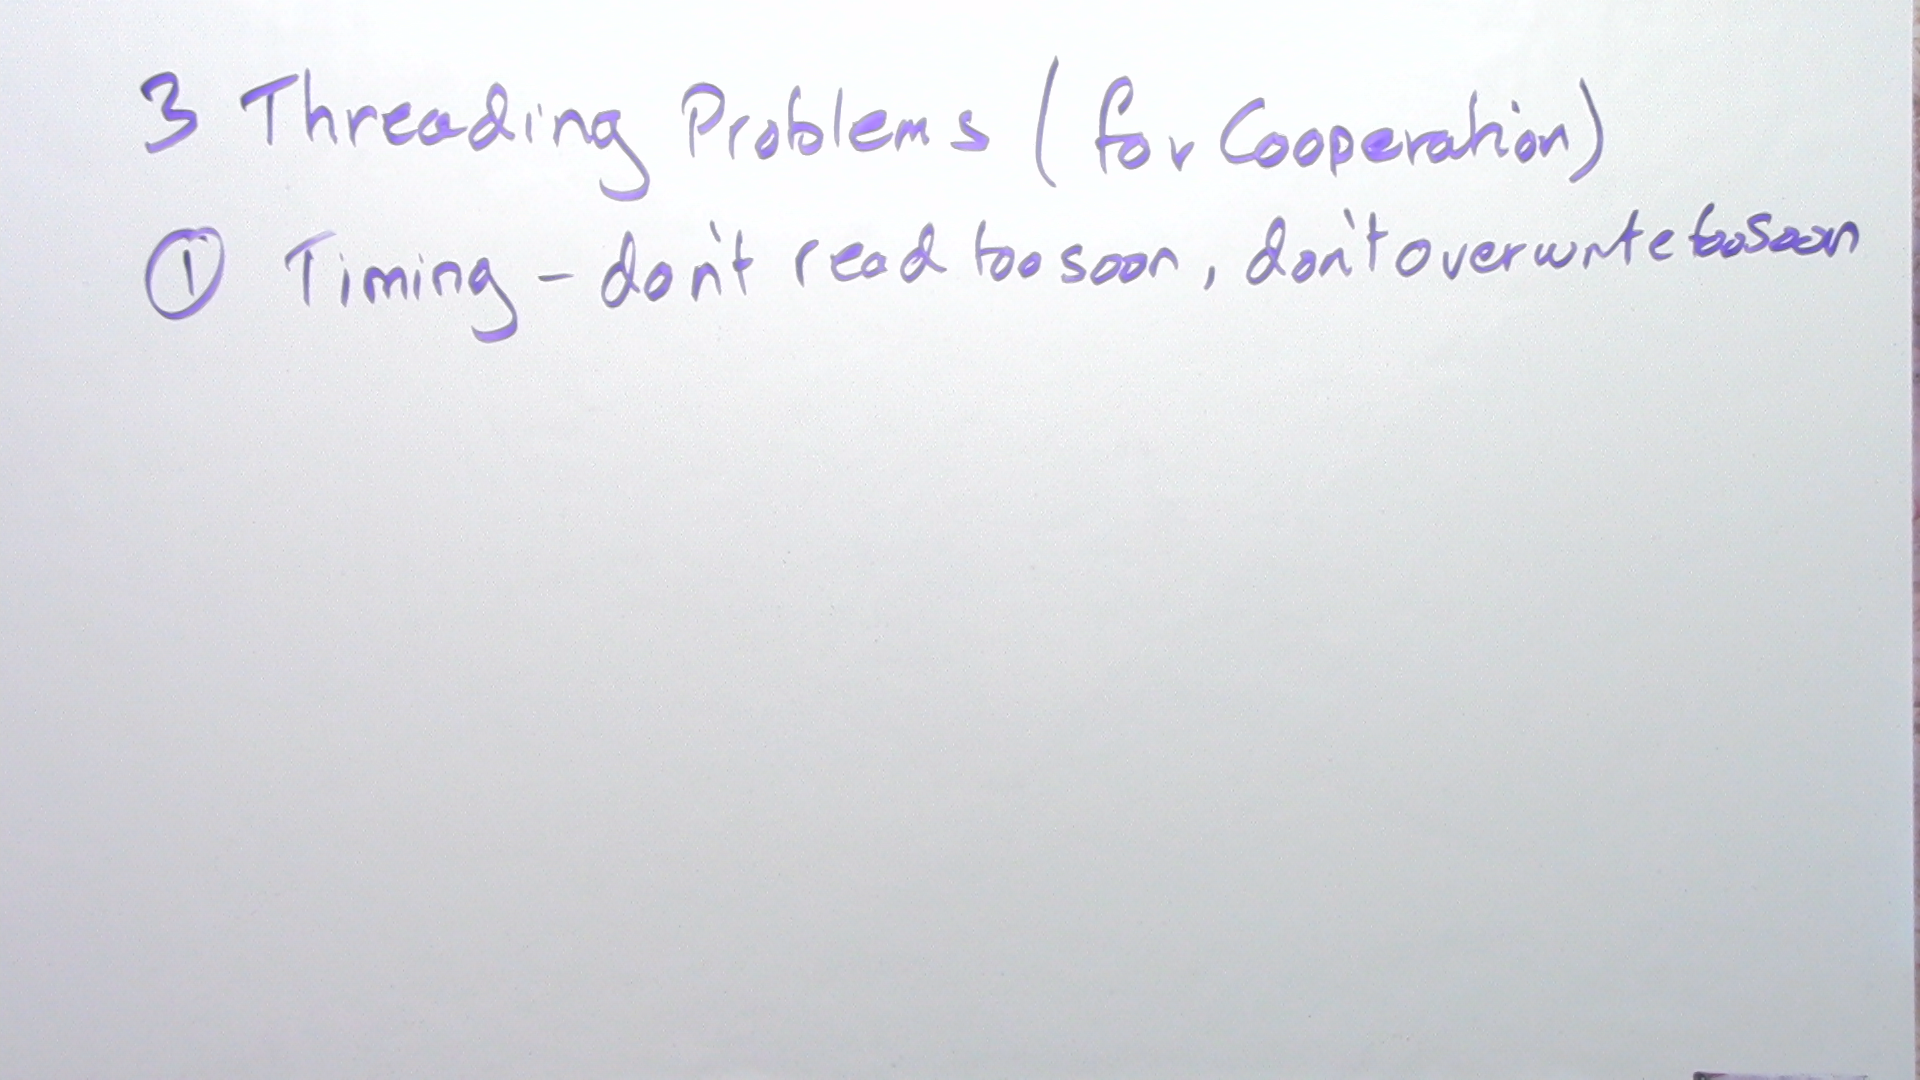 3 Threading Problems (for Cooperation)
① Timing - don't read too soon, don't overwrite too soon